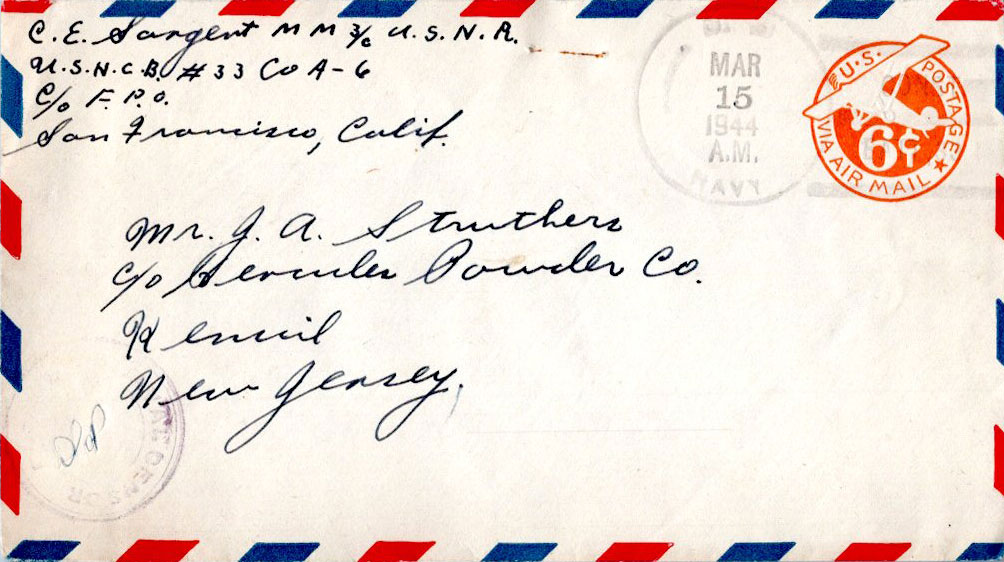 C. E. Sargent M M 3/c U. S. N. R.
U.S.N.C.B. # 33 Co A-6
c/o F. P. O.
San Francisco, Calif.
MAR
15
1944
A.M.
NAVY
U.S. POSTAGE
6¢
VIA AIR MAIL
Mr. J. A. Struthers
c/o Hercules Powder Co.
Kenvil
New Jersey.
CENSOR